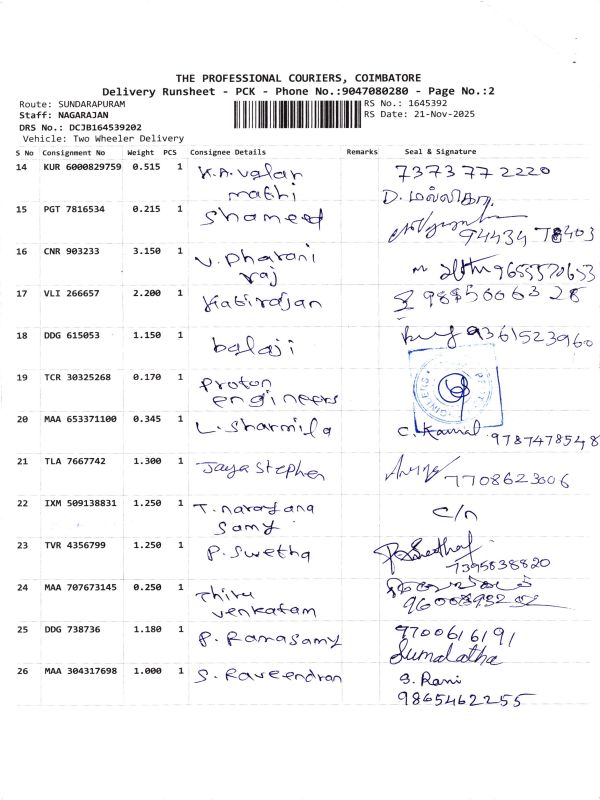 THE PROFESSIONAL COURIERS, COIMBATORE
Delivery Runsheet - PCK - Phone No.:9047080280 - Page No.:2
Route: SUNDARAPURAM
RS No.: 1645392
Staff: NAGARAJAN
RS Date: 21-Nov-2025
DRS No.: DCJB164539202
Vehicle: Two Wheeler Delivery
S No Consignment No Weight PCS Consignee Details Remarks Seal & Signature
14 KUR 6000829759 0.515 1 K.A. Valar 737377 2220
mathi D. மல்லிகா
15 PGT 7816534 0.215 1 Shameed
94434 78403
16 CNR 903233 3.150 1 V. Pharani
raj 9655570653
17 VLI 266657 2.200 1 Kabirajan
18 DDG 615053 1.150 1 balaji 9361523960
19 TCR 30325268 0.170 1 Proton
engineers
20 MAA 653371100 0.345 1 L. Sharmila C. Kamal 9787478548
21 TLA 7667742 1.300 1 Jaya Stephen
7708623006
22 IXM 509138831 1.250 1 T. narayana C/n
Samy
23 TVR 4356799 1.250 1 P. Swetha
7395838820
24 MAA 707673145 0.250 1 Thiru
venkatam
25 DDG 738736 1.180 1 P. Ramasamy 9700616191
Sumalatha
26 MAA 304317698 1.000 1 S. Raveendran S. Rani
9865462255